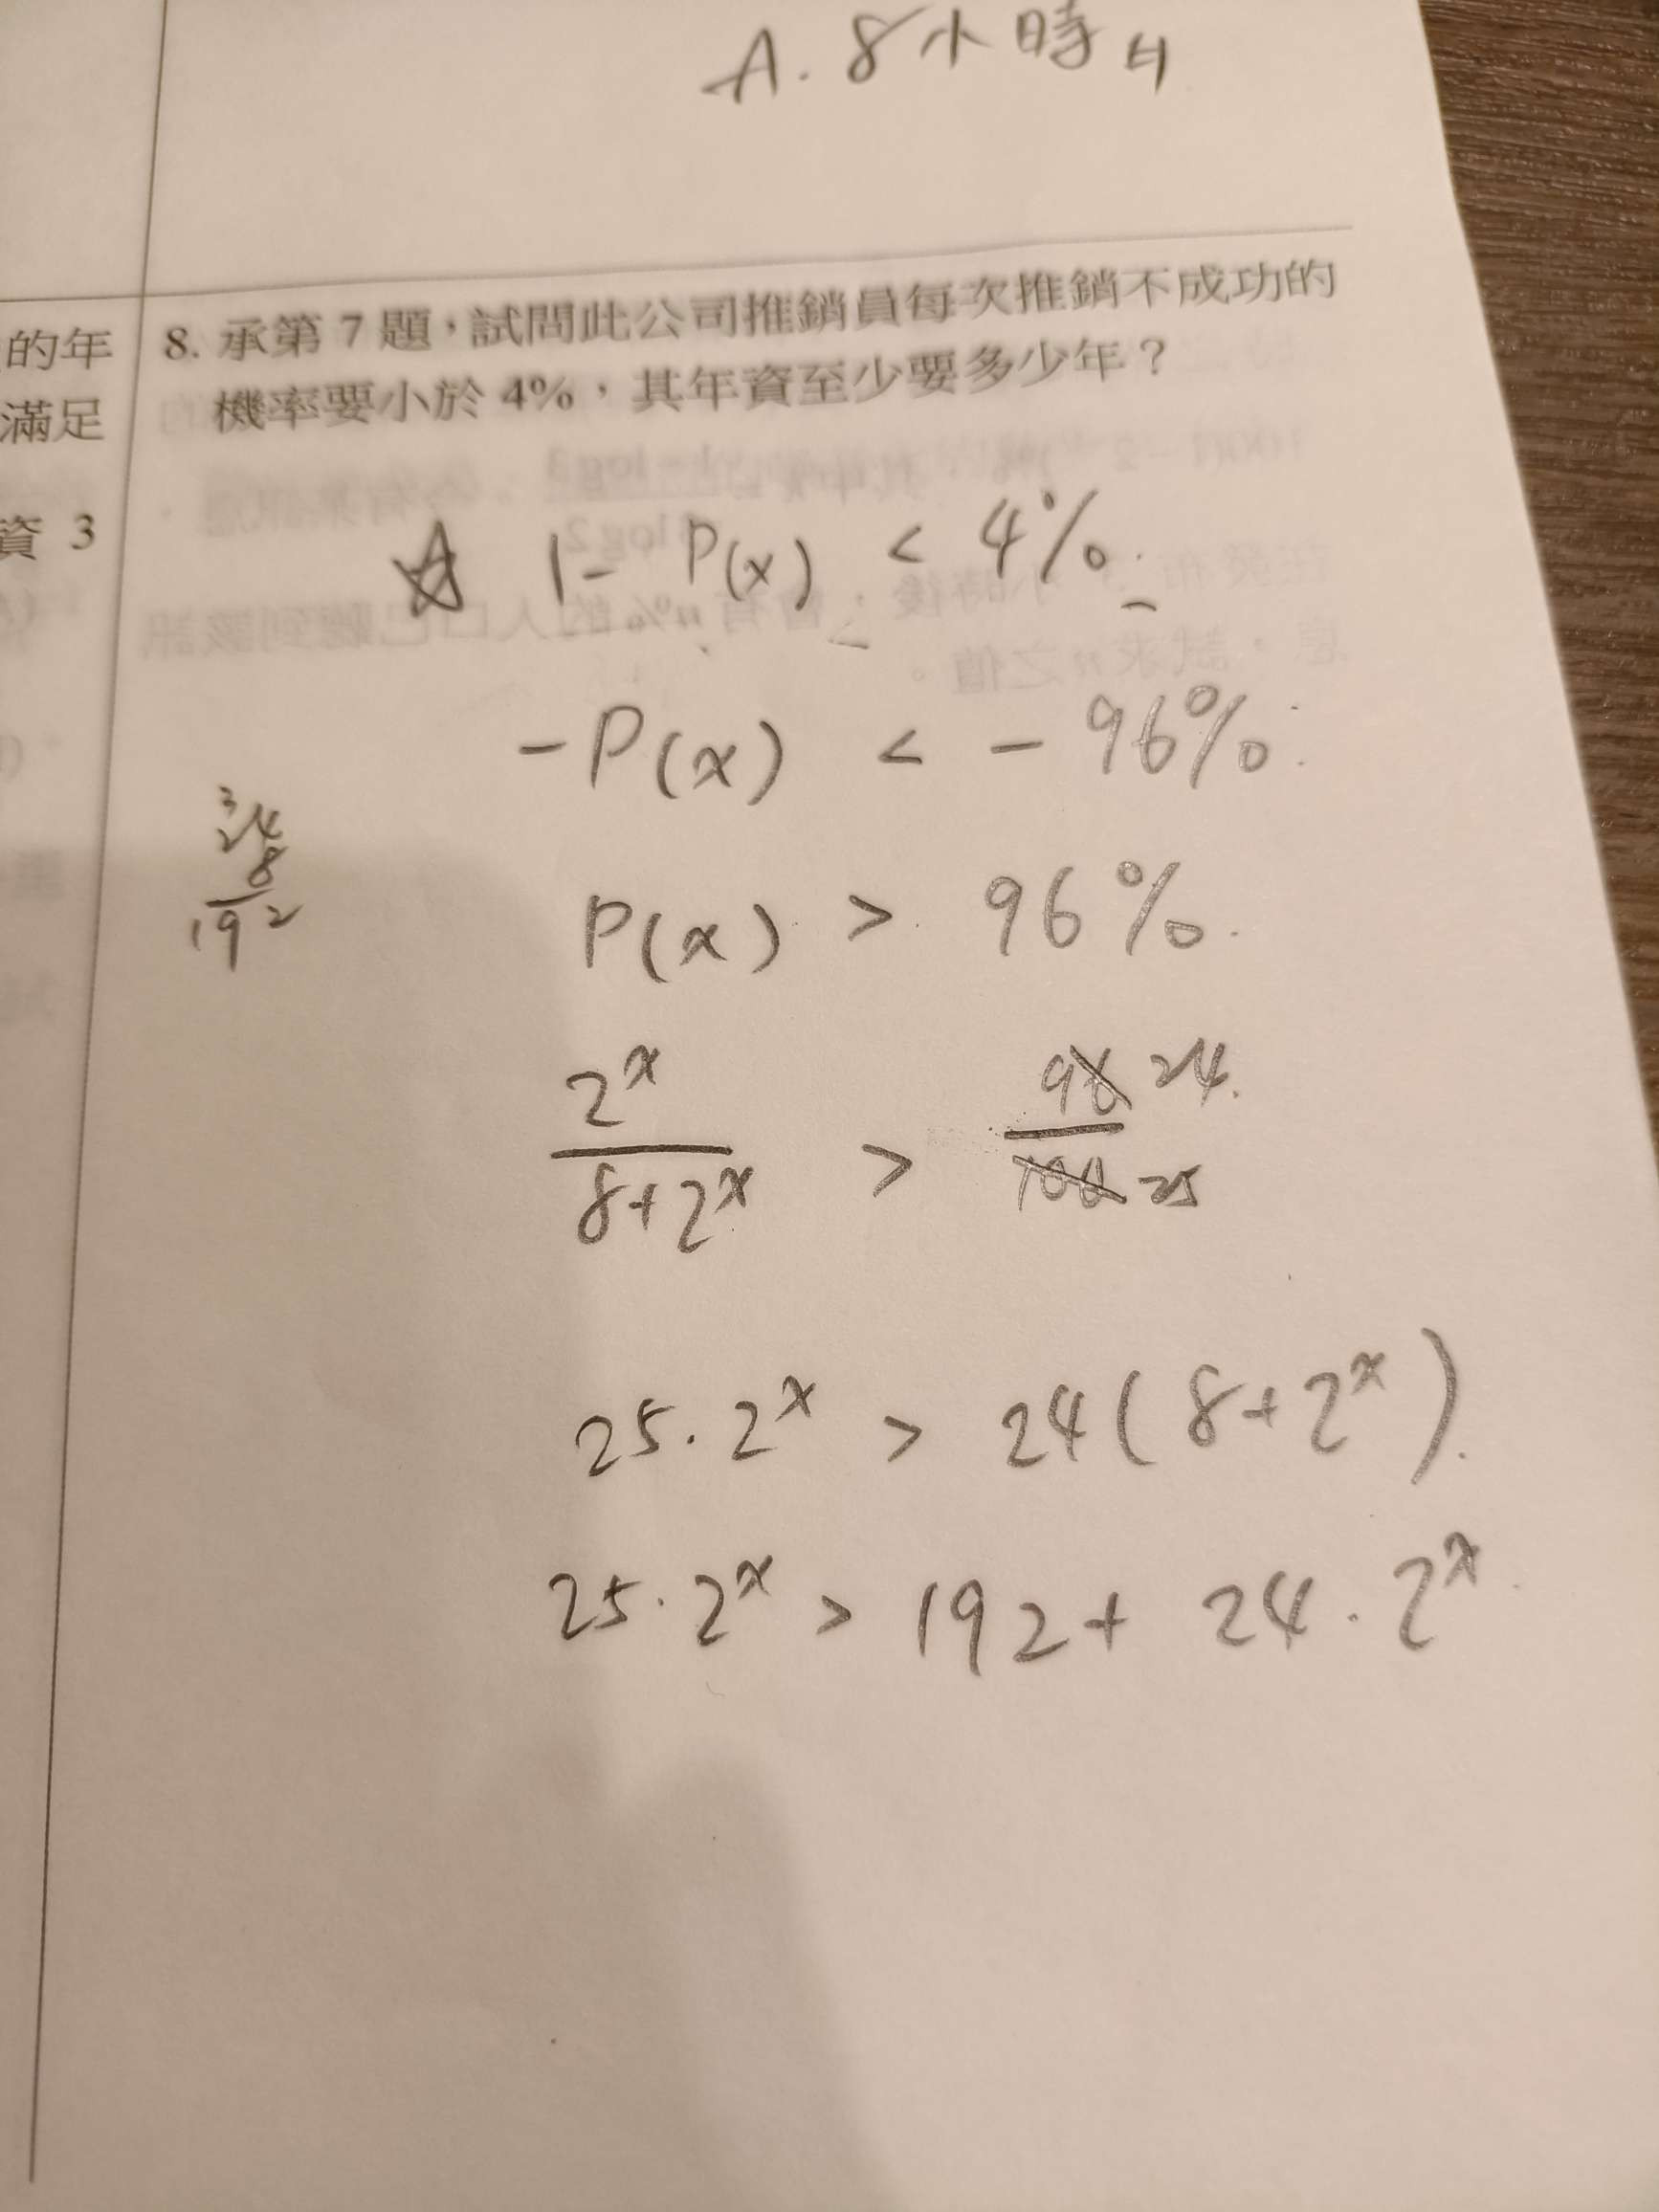 A. 8小時
的年
滿足
資 3
8. 承第 7 題，試問此公司推銷員每次推銷不成功的
機率要小於 4%，其年資至少要多少年？
1 - P(x) < 4%
-P(x) < -96%
P(x) > 96%
24
8
192
2^x / 8+2^x > 96 / 100 24 / 25
25·2^x > 24(8+2^x)
25·2^x > 192 + 24·2^x